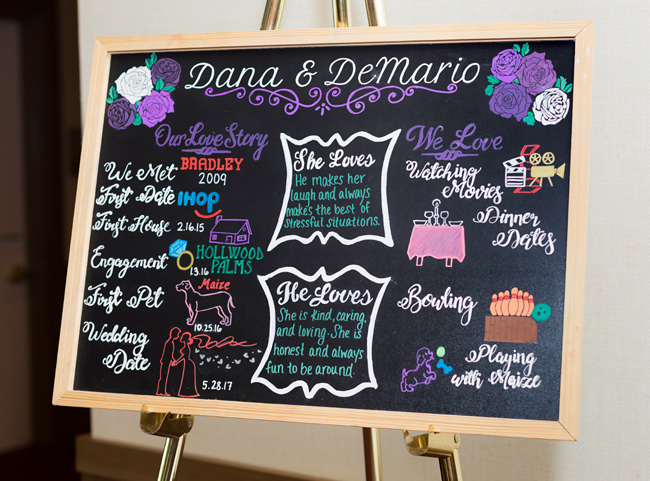 Dana & DeMario
Our Love Story
We Met BRADLEY
2009
First Date IHOP
First House 2.16.15
Engagement HOLLWOOD
PALMS
First Pet Maize
10.25.16
Wedding
Date
5.28.17
She Loves
He makes her
laugh and always
makes the best of
stressful situations.
He Loves
She is kind, caring,
and loving. She is
honest and always
fun to be around.
We Love
Watching
Movies
Dinner
Dates
Bowling
Playing
with Maize